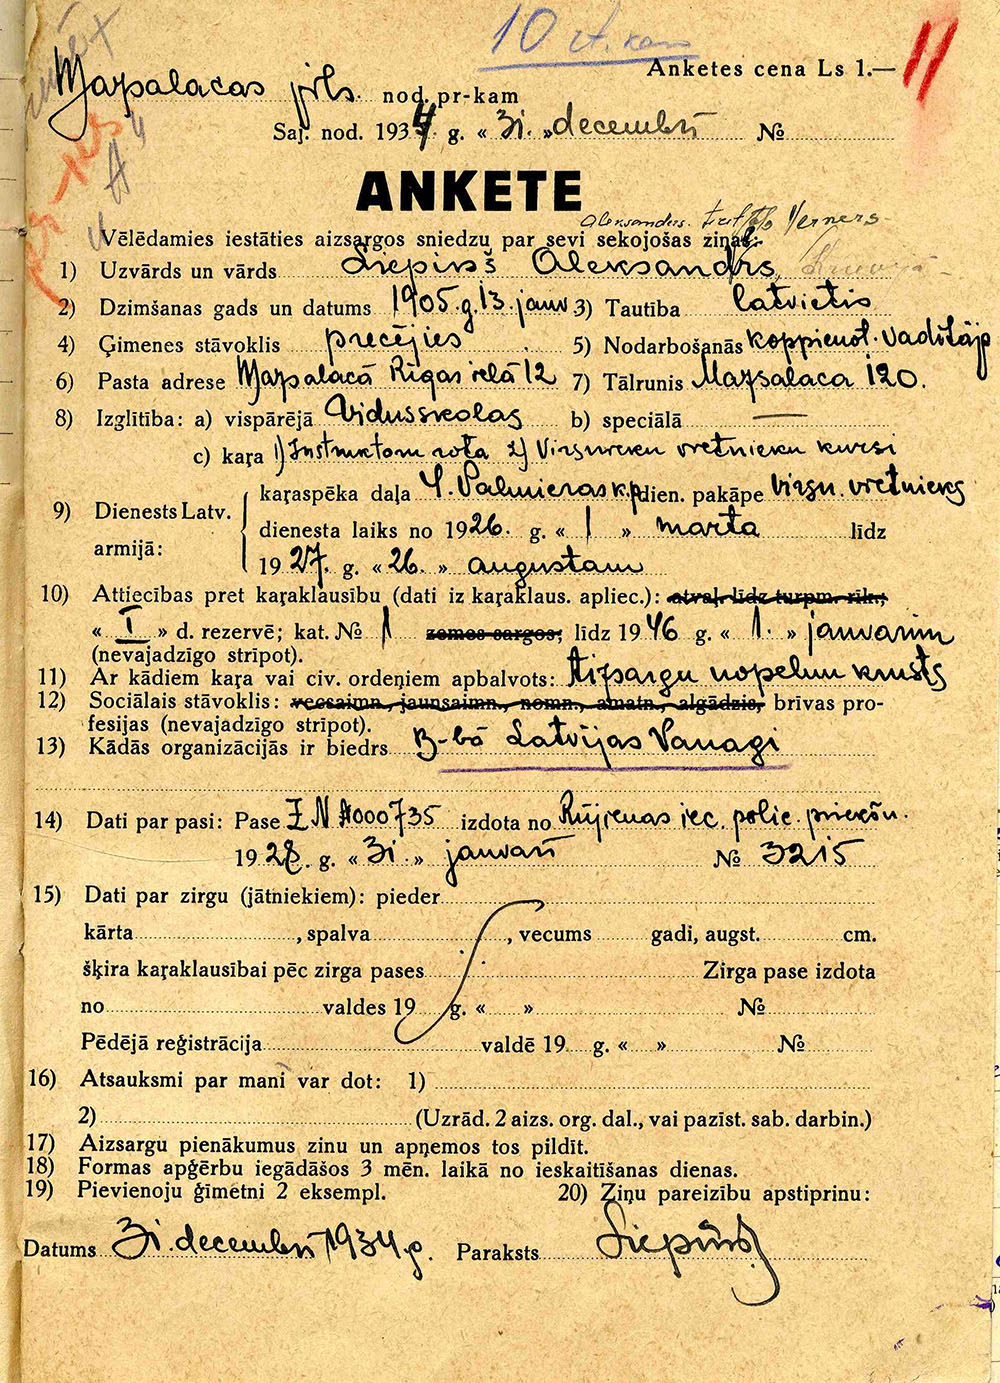 10
Anketes cena Ls 1.—
11
Mazsalacas pils. nod. pr-kam
Saj. nod. 1934 g. « 31. » decembrī №
ANKETE
Aleksanders. Verners
Vēlēdamies iestāties aizsargos sniedzu par sevi sekojošas ziņas:
1) Uzvārds un vārds Liepiņš Aleksandrs,
2) Dzimšanas gads un datums 1905.g. 13. janv. 3) Tautība latvietis
4) Ģimenes stāvoklis precējies 5) Nodarbošanās koppienot. vadītājs
6) Pasta adrese Mazsalacā Rīgas ielā 12 7) Tālrunis Mazsalaca 120.
8) Izglītība: a) vispārējā Vidusskolas b) speciālā —
c) kaŗa 1) Instruktoru rota 2) Virsnieku vietnieku kursi
9) Dienests Latv. armijā:
kaŗaspēka daļa 4. Valmieras k.p. dien. pakāpe virsn. vietnieks
dienesta laiks no 1926. g. « 1 » marta līdz
1927. g. « 26. » augustam
10) Attiecības pret kaŗaklausību (dati iz kaŗaklaus. apliec.): atvaļ. līdz turpm. rīk.;
« I » d. rezervē; kat. № 1 zemes sargos; līdz 1946 g. « 1. » janvarim
(nevajadzīgo strīpot).
11) Ar kādiem kaŗa vai civ. ordeņiem apbalvots: Aizsargu nopelnu krusts
12) Sociālais stāvoklis: vecsaimn., jaunsaimn., nomn., amatn., algādzis, brīvas pro-
fesijas (nevajadzīgo strīpot).
13) Kādās organizācijās ir biedrs B-bā Latvijas Vanagi
14) Dati par pasi: Pase Z N 000735 izdota no Rūjienas iec. polic. priekšn.
1928. g. « 31. » janvarī № 3215
15) Dati par zirgu (jātniekiem): pieder
kārta , spalva , vecums gadi, augst. cm.
šķira kaŗaklausībai pēc zirga pases Zirga pase izdota
no valdes 19 g. « » №
Pēdējā reģistrācija valdē 19 g. « » №
16) Atsauksmi par mani var dot: 1)
2) (Uzrād. 2 aizs. org. dal., vai pazīst. sab. darbin.)
17) Aizsargu pienākumus zinu un apņemos tos pildīt.
18) Formas apģērbu iegādāšos 3 mēn. laikā no ieskaitīšanas dienas.
19) Pievienoju ģimetni 2 eksempl. 20) Ziņu pareizību apstiprinu:
Datums 31. decembrī 1934 g. Paraksts Liepiņš